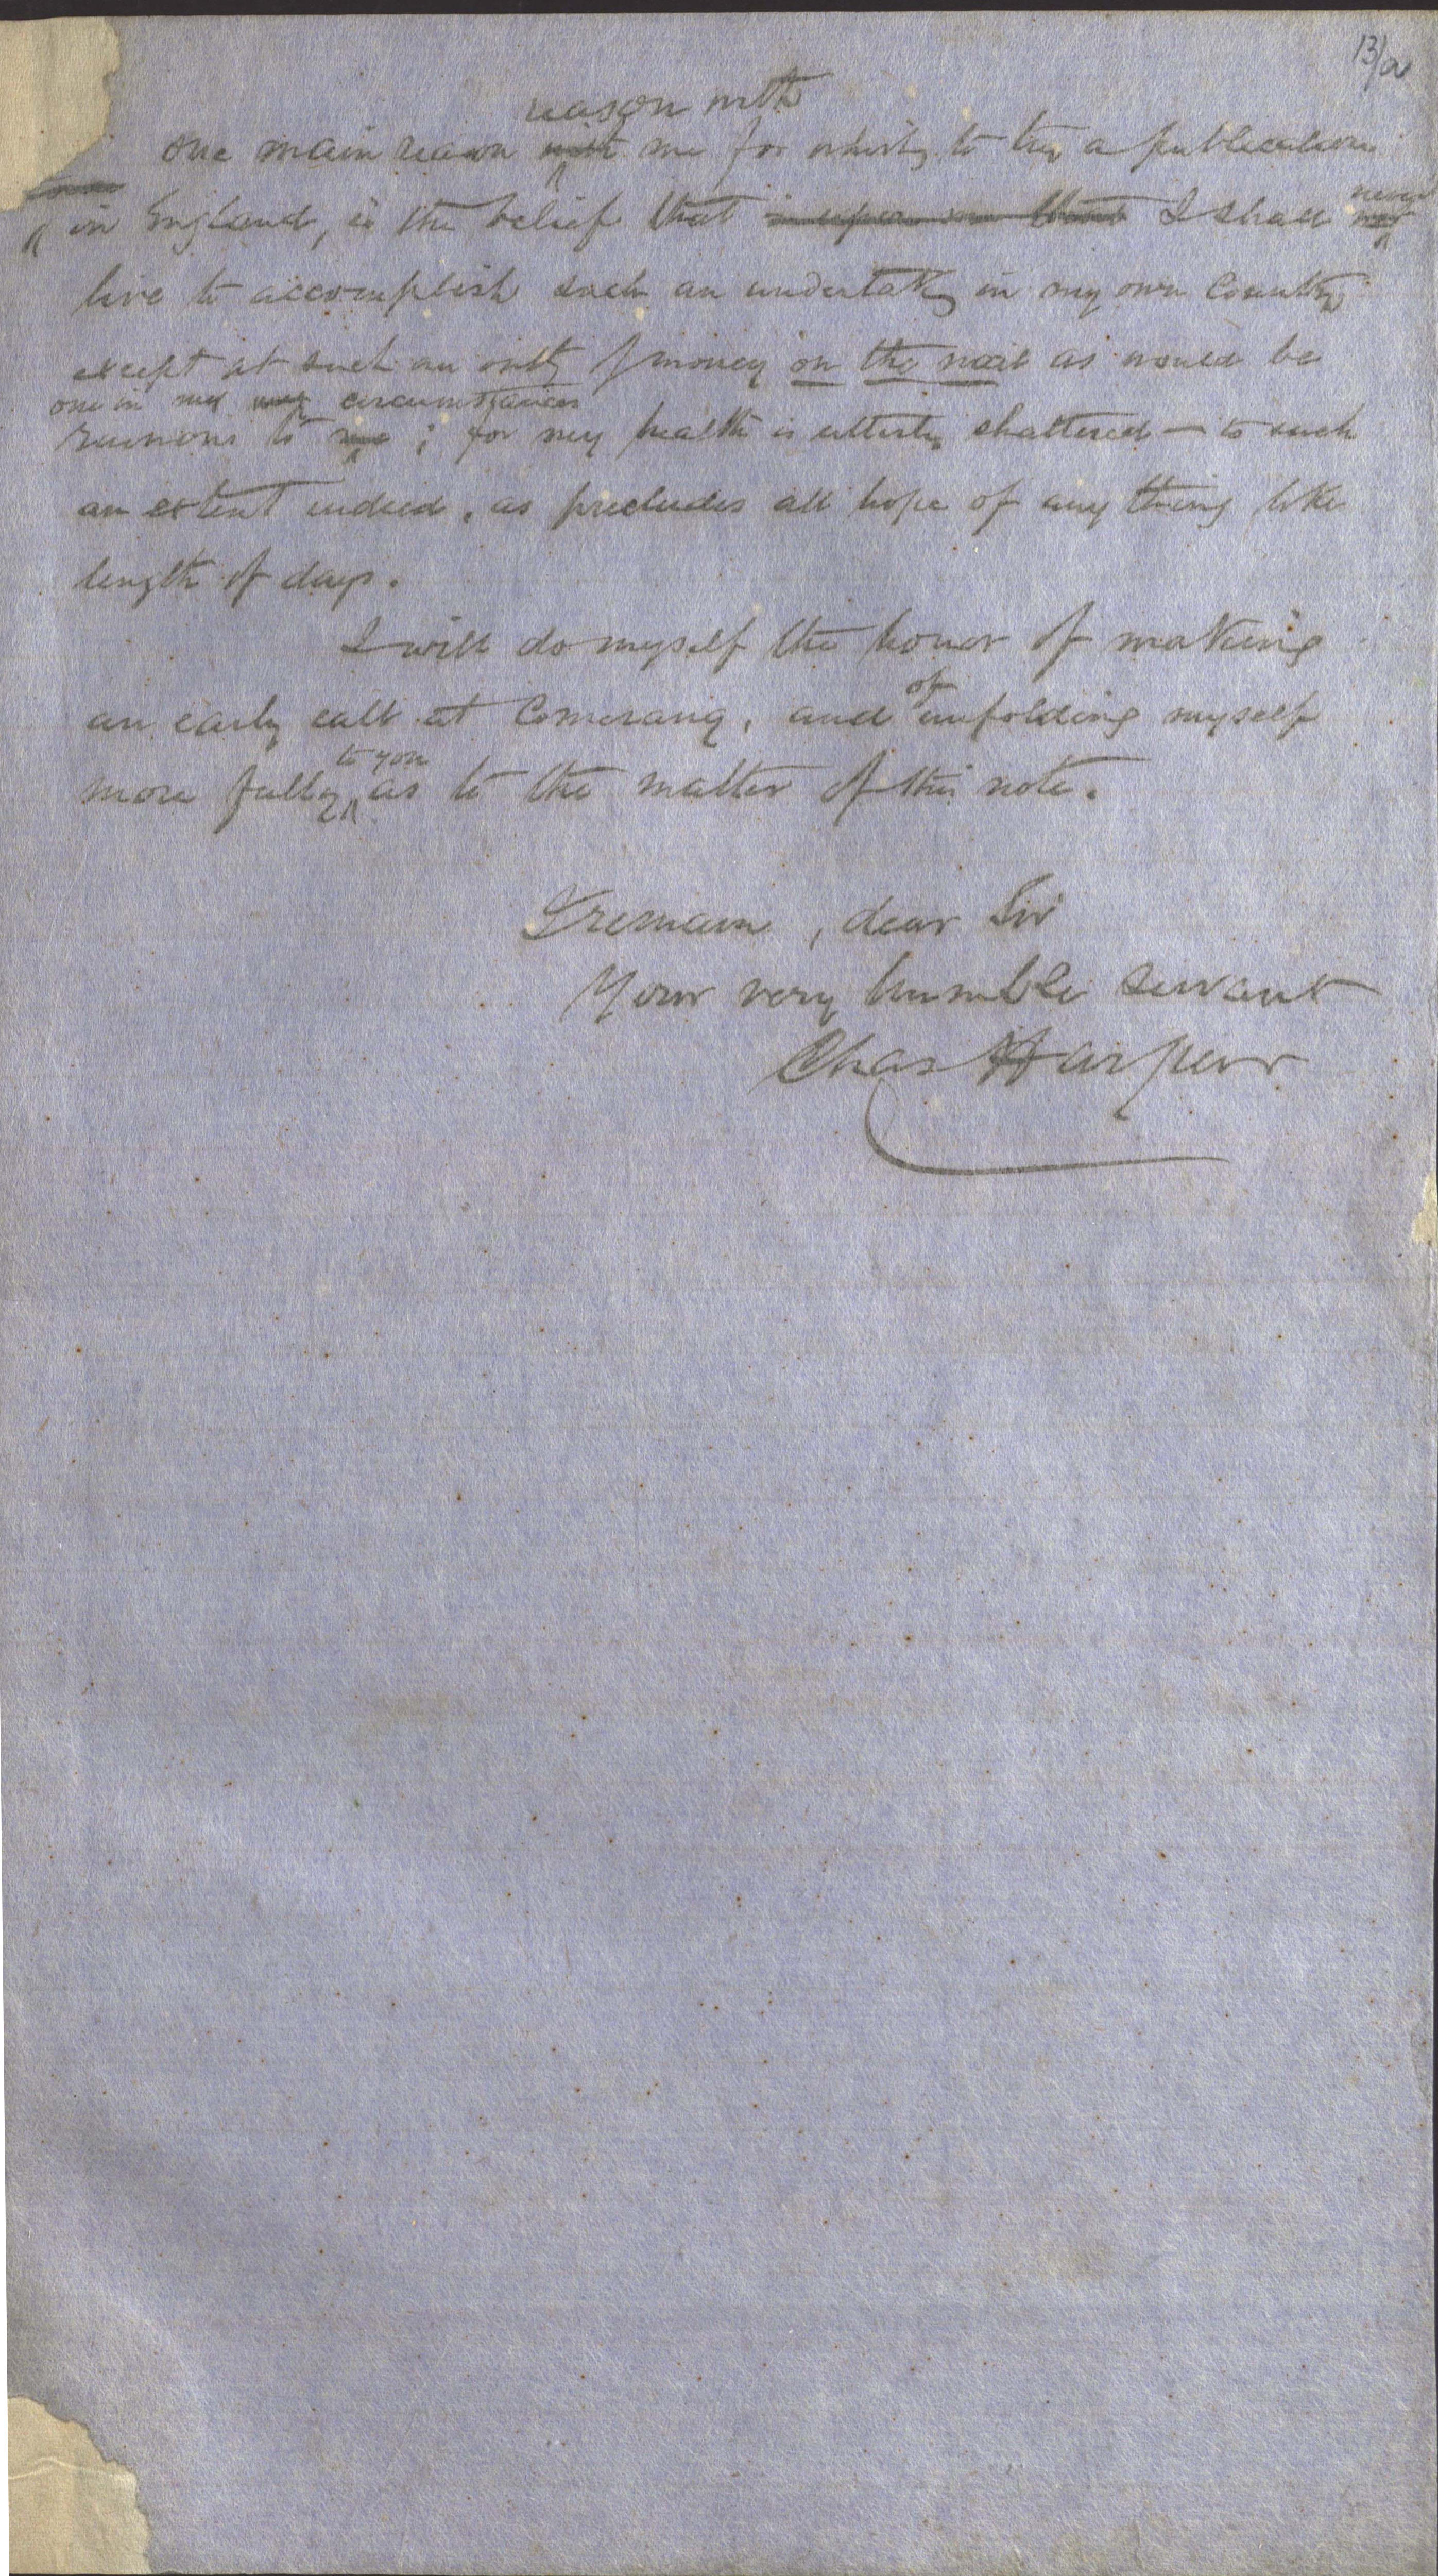 13/a
reason with
one main reason with me for wishing to try a publication
in England, is the belief that I shall never
live to accomplish such an undertakg in my own Country
except at such an outlay of money on the nail as would be
one in my circumstances
ruinous to me; for my health is utterly shattered — to such
an extent indeed, as precludes all hope of any thing like
length of days.
I will do myself the honor of making
an early call at Comerang, and of unfolding myself
to you
more fully as to the matter of this note.
I remain, dear Sir
Your very humble servant
Chas Harpur